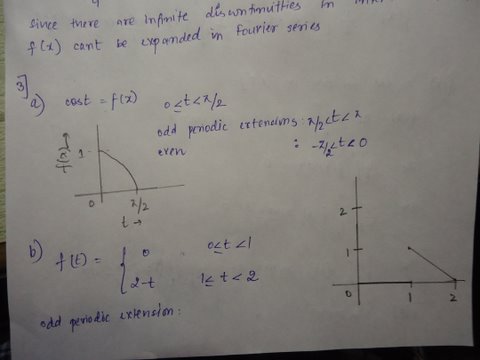 since there are infinite discontinuities in
f(x) cant be expanded in Fourier series
3]
a) cost = f(x) 0≤t<π/2
odd periodic extensions: π/2<t<π
even : -π/2<t<0
f(x)→
1
0 π/2
t →
b) f(t) = { 0 0≤t<1
2-t 1≤t<2
2
1
0 1 2
odd periodic extension: